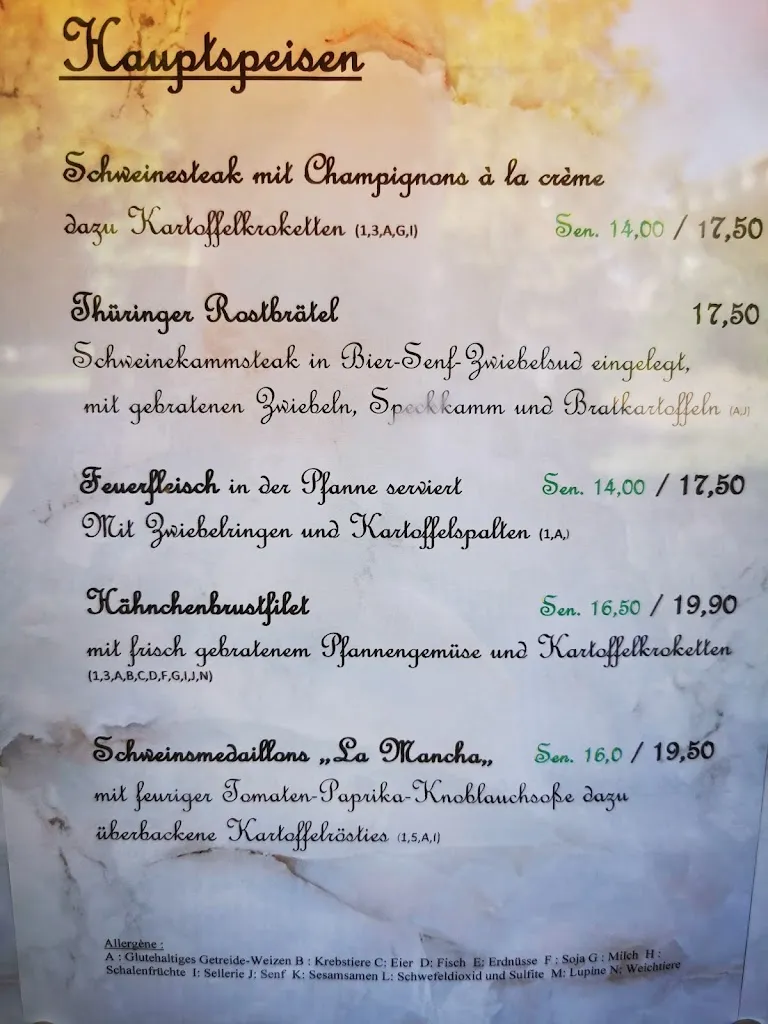 Hauptspeisen
Schweinesteak mit Champignons à la crème
dazu Kartoffelkroketten (1,3,A,G,I) Sen. 14,00 / 17,50
Thüringer Rostbrätel 17,50
Schweinekammsteak in Bier-Senf-Zwiebelsud eingelegt,
mit gebratenen Zwiebeln, Speckkamm und Bratkartoffeln (A,J)
Feuerfleisch in der Pfanne serviert Sen. 14,00 / 17,50
Mit Zwiebelringen und Kartoffelspalten (1,A,)
Hähnchenbrustfilet Sen. 16,50 / 19,90
mit frisch gebratenem Pfannengemüse und Kartoffelkroketten
(1,3,A,B,C,D,F,G,I,J,N)
Schweinsmedaillons „La Mancha„ Sen. 16,0 / 19,50
mit feuriger Tomaten-Paprika-Knoblauchsoße dazu
überbackene Kartoffelrösties (1,5,A,I)
Allergène :
A : Glutehaltiges Getreide-Weizen B : Krebstiere C: Eier D: Fisch E: Erdnüsse F : Soja G : Milch H :
Schalenfrüchte I: Sellerie J: Senf K: Sesamsamen L: Schwefeldioxid und Sulfite M: Lupine N: Weichtiere